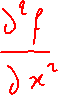 \frac{\partial^2 f}{\partial x^2}